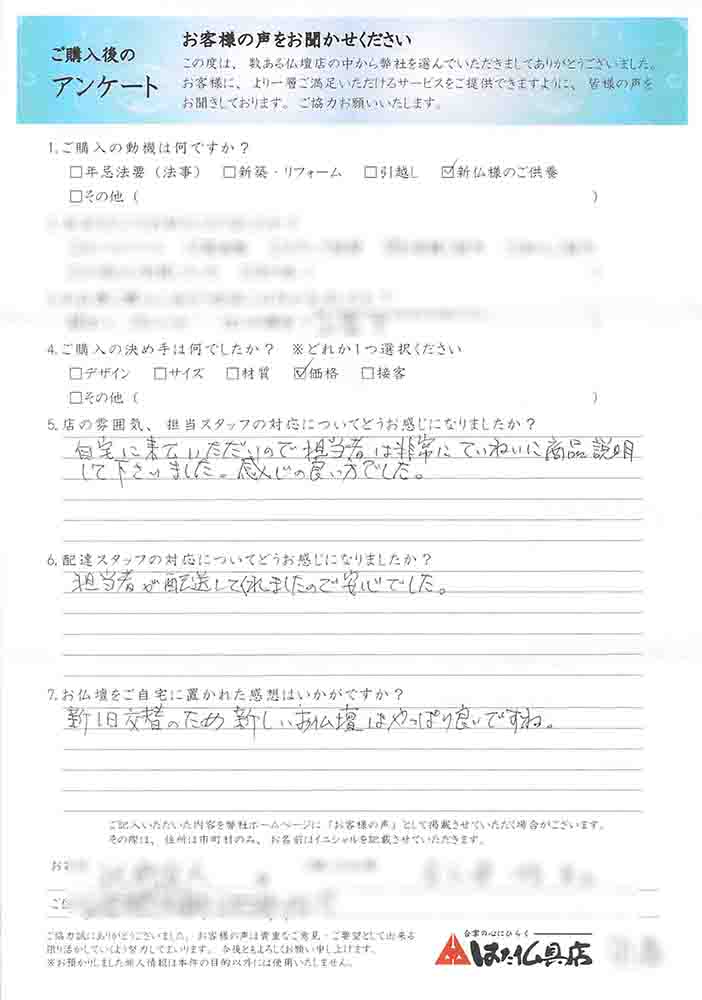 ご購入後の
アンケート
お客様の声をお聞かせください
この度は、数ある仏壇店の中から弊社を選んでいただきましてありがとうございました。
お客様に、より一層ご満足いただけるサービスをご提供できますように、皆様の声を
お聞きしております。ご協力お願いいたします。
1.ご購入の動機は何ですか？
□年忌法要（法事） □新築・リフォーム □引越し ☑新仏様のご供養
□その他（ ）
4.ご購入の決め手は何でしたか？ ※どれか1つ選択ください
□デザイン □サイズ □材質 ☑価格 □接客
□その他（ ）
5.店の雰囲気、担当スタッフの対応についてどうお感じになりましたか？
自宅に来ていただいので担当者は非常にていねいに商品説明
して下さいました。感んじの良い方でした。
6.配達スタッフの対応についてどうお感じになりましたか？
担当者が配送してくれましたので安心でした。
7.お仏壇をご自宅に置かれた感想はいかがですか？
新旧交替のため新しいお仏壇はやっぱり良いですね。
ご記入いただいた内容を弊社ホームページに「お客様の声」として掲載させていただく場合がございます。
その際は、住所は市町村のみ、お名前はイニシャルを記載させていただきます。
ご協力誠にありがとうございました。お客様の声は貴重なご意見・ご要望として出来る
限り活かしていくよう努力してまいります。今後ともよろしくお願い申し上げます。
※お預かりしました個人情報は本件の目的以外には使用いたしません。
合掌の心にひらく
はた仏具店